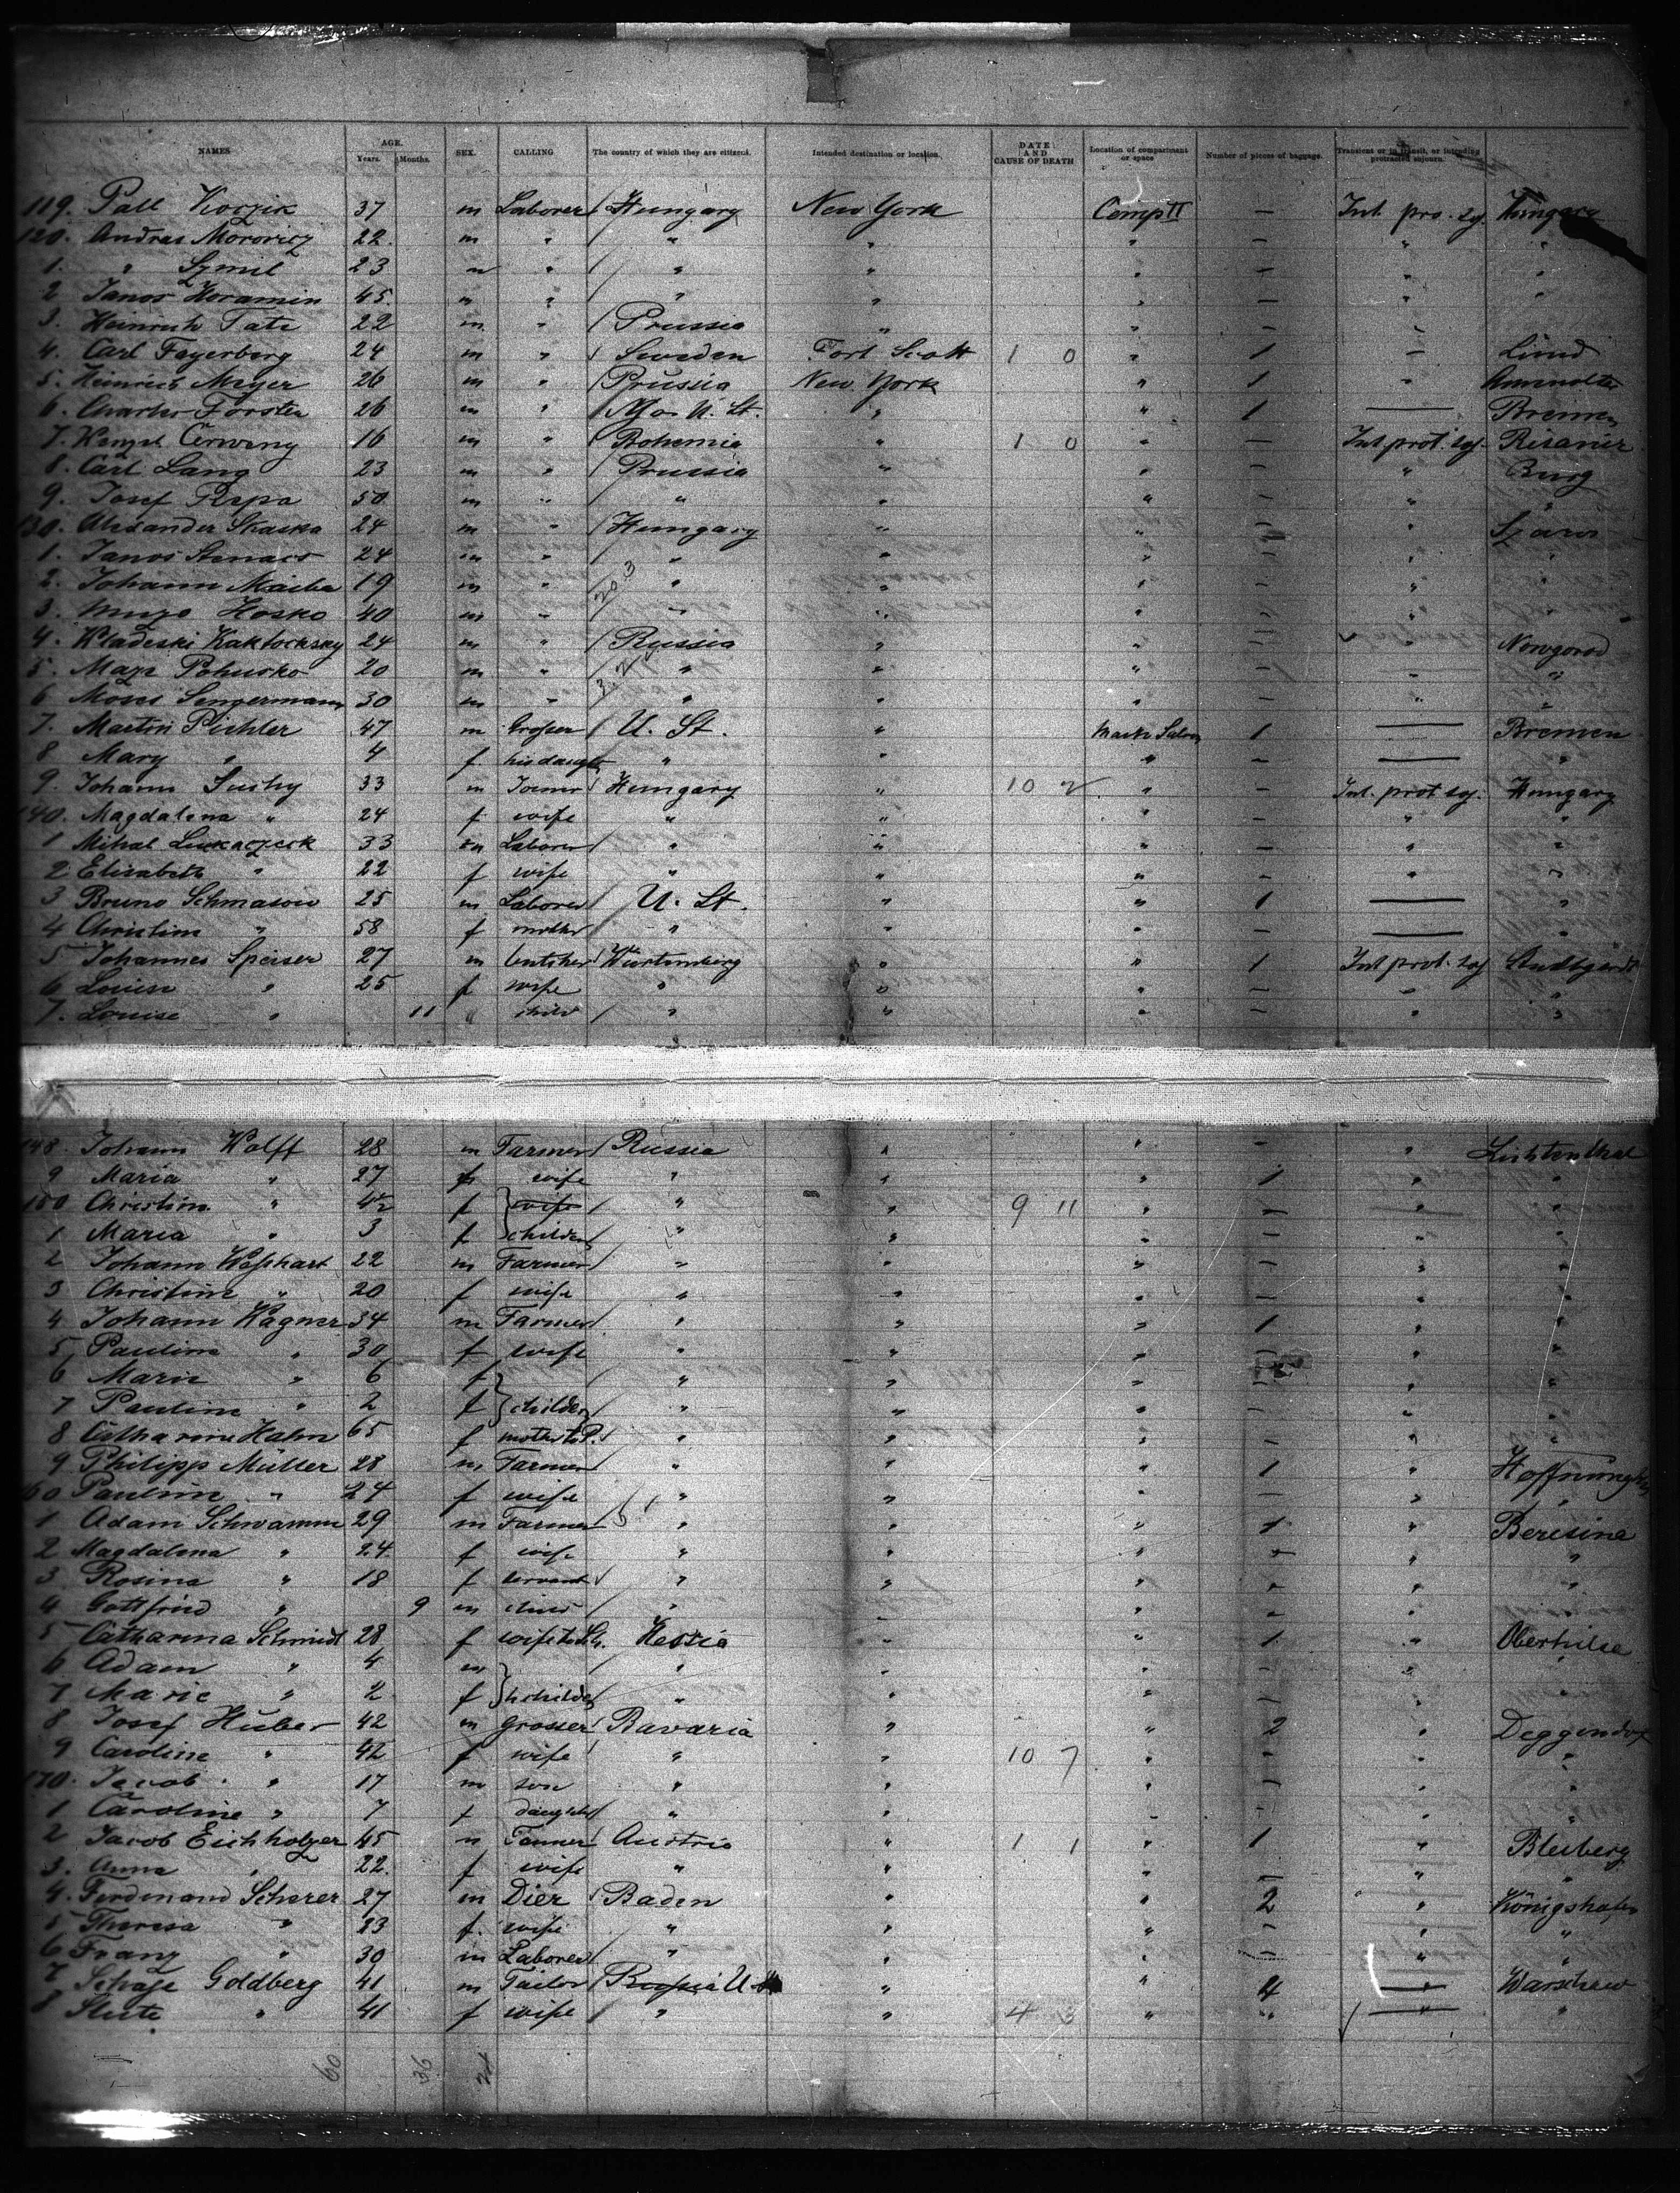 NAMES AGE. Years. Months. SEX. CALLING The country of which they are citizens. Intended destination or location. DATE AND CAUSE OF DEATH Location of compartment or space Number of pieces of baggage. Transient or in transit, or intending protracted sojourn.
119. Pall Koczik 37 m Laborer Hungary New York Comp II — Int. pro. sj. Hungary
120. Andras Morovicz 22 m " " " " — " "
1. " Szmil 23 m " " " " — " "
2 Janos Horamin 45 " " " " " — " "
3. Heinrich Tatz 22 m " Prussia " " —
4. Carl Fagerberg 24 m " Sweden Fort Scott 1 0 " 1 — Lund
5. Heinrich Meyer 26 m " Prussia New York " 1 "
6. Charles Forster 26 m " U. St. " " 1 — Bremen
7. Wenzel Cerweny 16 m " Bohemia " 1 0 " — Int. prot. sj.
8. Carl Lang 23 m " Prussia " " — " Burg
9. Josef Repa 50 m " " " " " "
130. Alexander Skaska 24 m " Hungary " " — "
1. Janos 24 m " " " " — " "
2. Johann 19 m " " " " — " "
3. Hosko 40 m " " " " — "
4. Wladeski 24 m " Russia " " — " Nowgorod
5. Pohusko 20 m " " " " — " "
6 Moses Sengermann 30 m " " " " — " "
7. Martin Pichler 47 m Groser U. St. " 1 — Bremen
8 Mary " 4 f his daughter " " " — — "
9. Johann Suchy 33 m Hungary " 10 2 " — Int. prot. sj. Hungary
140. Magdalena " 24 f wife " " " — " "
1 Mihal Lukaczeck 33 m Laborer " " " — " "
2 Elisabeth " 22 f wife " " " — " "
3 Bruno Schmasow 25 m Laborer U. St. " " 1 — "
4 Christine " 58 f mother " " " — — "
5 Johannes Speiser 27 m Würtemberg " " 1 Int. prot. soj
6 Louise " 25 f wife " " " — " "
7. Louise " 11 " child " " " — " "
148. Johann Wolff 28 m Farmer Russia " " — " Lichtenthal
9 Maria " 27 f wife " " " 1 " "
150 Christine " f wife " " 9 11 " — " "
1 Maria " 3 f children " " " — " "
2 Johann 22 m Farmer " " " — " "
3 Christine " 20 f wife " " " — " "
4 Johann Wagner 34 m Farmer " " " 1 " "
5 Pauline " 30 f wife " " " — " "
6 Marie " 6 f " " " — " "
7 Pauline " 2 f children " " " — " "
8 Catharine Hahn 65 f mother to P. " " " — " "
9 Philipp Müller 28 m Farmer " " " 1 "
160 Pauline " 24 f wife " " " — " "
1 Adam Schwamm 29 m Farmer " " " 1 " Beresina
2 Magdalena " 24 f wife " " " " " "
3 Rosina " 18 f servant " " " " " "
4 Gottfried " 9 m child " " " " " "
5 Catharina Schmidt 28 f Hessia " " 1 "
6 Adam " 4 m " " " — " "
7 Marie " 2 f children " " " — " "
8 Josef Huber 42 m Grosser Bavaria " " 2 " Deggendorf
9 Caroline " 42 f wife " " 10 7 " — " "
170. Jacob " 17 m son " " " — " "
1 Caroline " 7 f daughter " " " — " "
2 Jacob Eichholzer 45 m Austria " 1 1 " 1 " Bleiberg
3. Anna " 22. f wife " " " — " "
4. Ferdinand Scherer 27 m Dier Baden " " 2 " Königshofen
5 Theresa " 23 f. wife " " " — " "
6 Franz " 30 m Laborer " " " — " "
7 Goldberg 41 m Tailor Russia " " 4 — Warschaw
8 " 41 f wife " " 4 3 " " — "
60 36